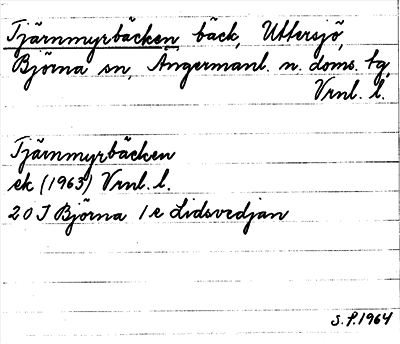 Tjärnmyrbäcken bäck, Uttersjö,
Björna sn, Ångermanl. n. doms. tg,
Vrnl. l.
Tjärnmyrbäcken
ek (1963) Vrnl. l.
20 J Björna 1e Lidsvedjan
S.P. 1964